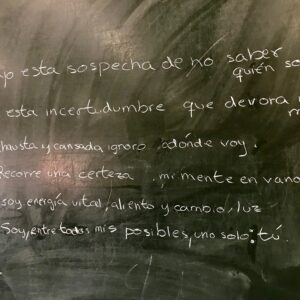 esta sospecha de no saber
quién
esta incertidumbre que devora
y cansada ignoro adónde voy.
Recorre una certeza mi mente en vano
soy energía vital, aliento y cambio, luz
Soy, entre todos mis posibles, uno solo: tú.